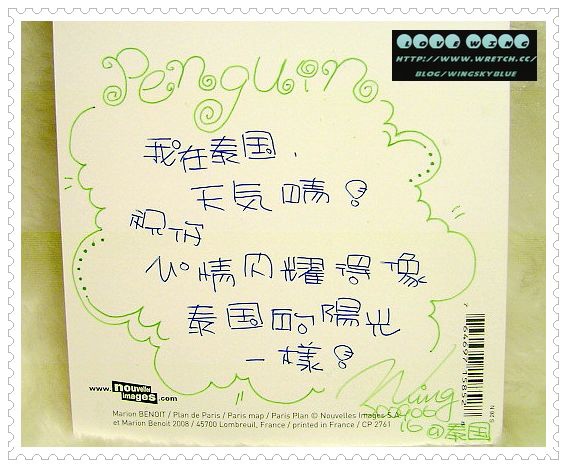 LOVE WING
HTTP://WWW.WRETCH.CC/
BLOG/WINGSKYBLUE
Penguin
我在泰国，
天気晴！
祝你
心情闪耀得像
泰国的陽光
一樣！
www.nouvelles images.com
Marion BENOIT / Plan de Paris / Paris map / Paris Plan © Nouvelles Images S.A.
et Marion Benoit 2008 / 45700 Lombreuil, France / printed in France / CP 2761
Wing
16 @泰国